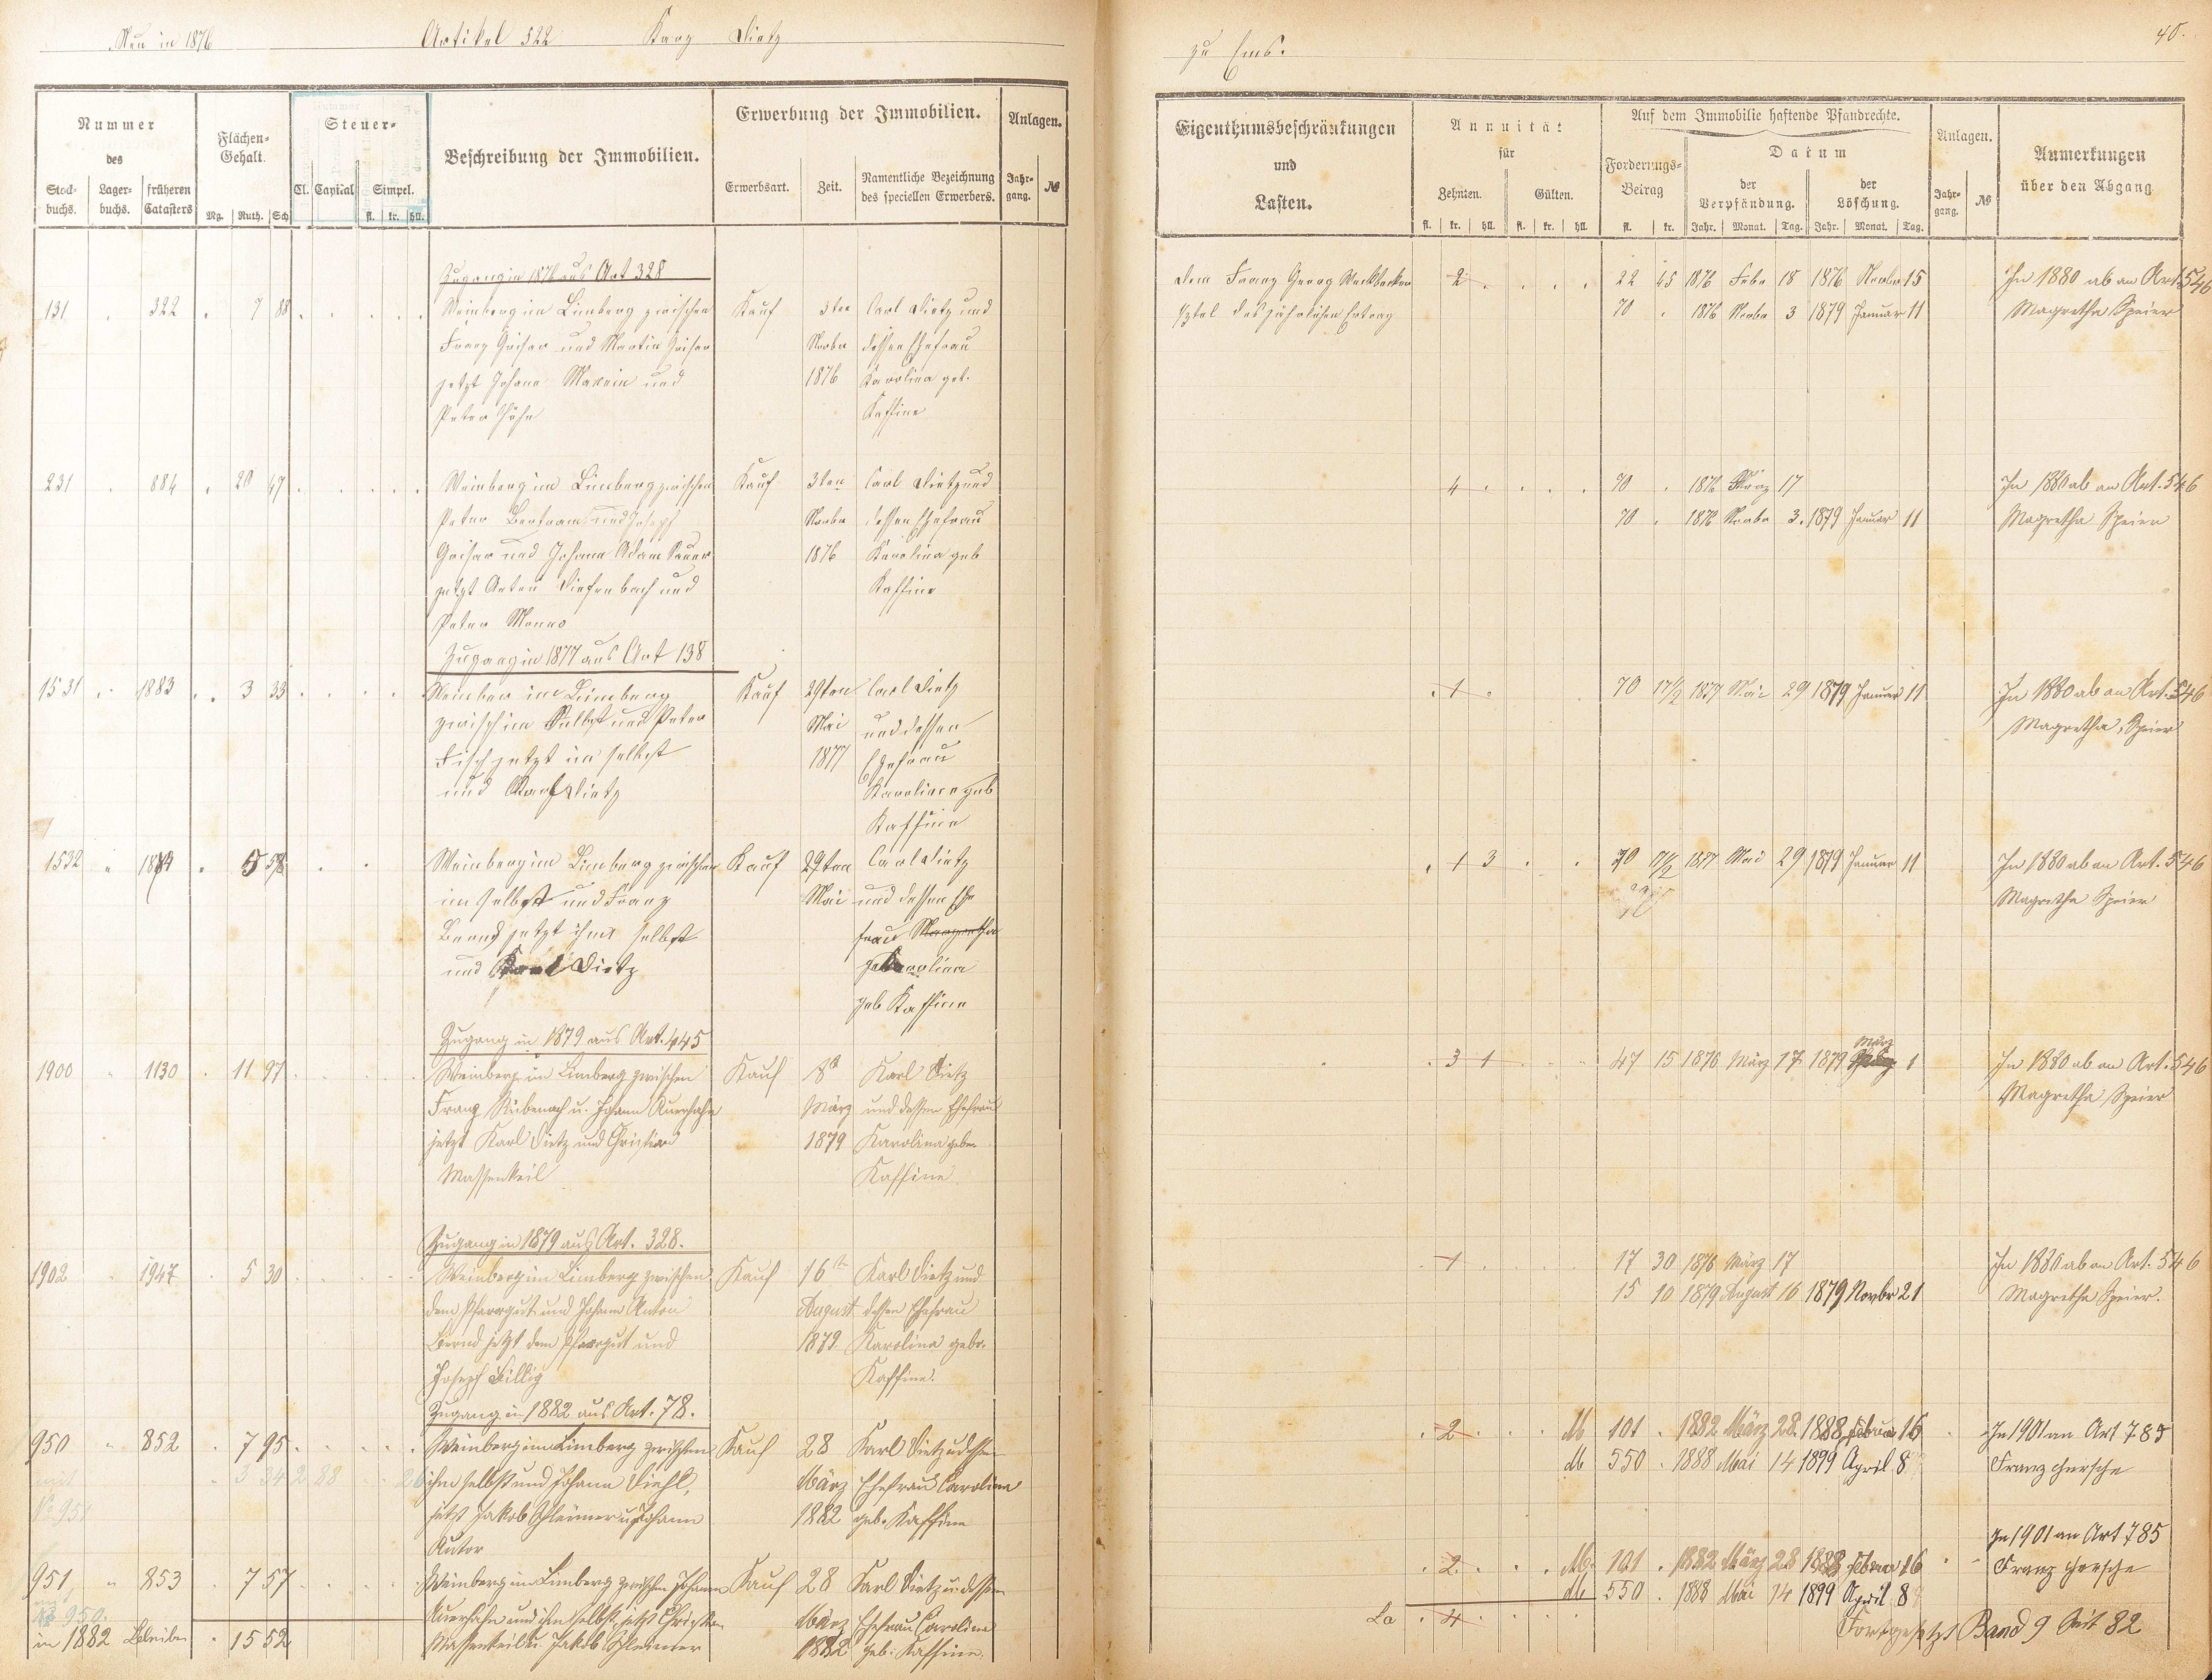 Neu in 1876 Artikel 522 Karg Dietz
zu Ems. 40.
Nummer
des
Stock-buchs. Lager-buchs. früheren Catasters
Flächen-Gehalt.
Mg. Ruth. Sch
Steuer-
Cl. Capital Simpel.
fl. kr. hll.
Beschreibung der Immobilien.
Erwerbung der Immobilien.
Erwerbsart. Zeit. Namentliche Bezeichnung des speciellen Erwerbers.
Anlagen.
Jahr-gang. №
Eigenthumsbeschränkungen
und
Lasten.
Annuität
für
Zehnten. Gülten.
fl. kr. hll. fl. kr. hll.
Auf dem Immobilie haftende Pfandrechte.
Forderungs-Betrag
fl. kr.
Datum
der Verpfändung. der Löschung.
Jahr. Monat. Tag. Jahr. Monat. Tag.
Anlagen.
Jahr-gang. №
Anmerkungen
über den Abgang
Zugang in 1876 aus Art 328
131 . 322 . 7 88 Weinberg im Limberg zwischen Kauf 3ten Carl Dietz und
Franz Grisar und Martin Grisar Novbr dessen Ehefrau
jetzt Johann und 1876 Karolina geb.
Peter Höhn Kaffine
Dem Franz Georg 2 22 45 1876 Febr 18 1876 Novbr 15 In 1880 ab an Art. 546
des jährlichen Ertrag 70 . 1876 Novbr 3 1879 Januar 11 Magretha Speier
231 . 884 . 20 47 Weinberg im Limberg zwischen Kauf 3ten Carl Dietz und
Peter Bertram und Joseph Novbr dessen Ehefrau
Grisar und Johann Adam Sauer 1876 Karolina geb
jetzt Anton Diefenbach und Kaffine
Peter
4 70 . 1876 März 17 In 1880 ab an Art. 546
70 . 1876 Novbr 3. 1879 Januar 11 Magretha Speier
Zugang in 1877 aus Art 138
1531 . 1883 . 3 33 Weinber im Limberg Kauf 29ten Carl Dietz
zwischim Selbst und Peter Mai und dessen
Fisch jetzt im selbst 1877 Ehefrau
und Karl Dietz Karolina geb
Kaffine
1 70 17/2 1877 Mai 29 1879 Januar 11 In 1880 ab an Art. 546
Magretha Speier
1532 " 1884 . 5 58 Weinberg im Limberg zwischen Kauf 29ten Carl Dietz
im selbst und Franz Mai und dessen Ehe
Bernd jetzt ihm selbst frau Margretha
und Karl Dietz Karolina
geb Kaffine
1 3 70 17/2 1877 Mai 29 1879 Januar 11 In 1880 ab an Art. 546
Magretha Speier
Zugang in 1879 aus Art. 445
1900 " 1130 . 11 97 Weinberg im Limberg zwischen Kauf 8t Karl Dietz
Franz Rübenach u. Johann Auerhahn März und dessen Ehefrau
jetzt Karl Dietz und Christian 1879 Karolina geben
Massenkeil Kaffine.
3 1 47 15 1876 März 17 1879 März 1 In 1880 ab an Art. 546
Magretha Speier
Zugang in 1879 aus Art. 328.
1902 " 1947 . 5 30 Weinberg im Limberg zwischen Kauf 16ten Karl Dietz und
dem Pfarrgut und Johann Anton August dessen Ehefrau
Bernd jetzt dem Pfarrgut und 1879 Karolina gebr.
Joseph Billig Kaffine.
1 17 30 1876 März 17 In 1880 ab an Art. 546
15 10 1879 August 16 1879 Novbr 21 Magretha Speier.
Zugang in 1882 aus Art. 78.
950 " 852 . 7 95 Weinberg im Limberg zwischen Kauf 28 Karl Dietz u dessen
mit 3 34 2 88 26 ihm selbst und Johann Diehl, März Ehefrau Carolina
No 951 jetzt Jakob Schleimer u Johann 1882 geb. Kaffine
Kutor
2 M 101 . 1882 März 28 1888 Februar 16 In 1901 an Art 785
M 550 . 1888 Mai 14 1899 April 8 Franz Hersche
951 " 853 . 7 57 Weinberg im Limberg zwischen Johann Kauf 28 Karl Dietz u. dessen
No 950. Auerhahn und ihm selbst, jetzt Christian März Ehefrau Caroline
in 1882 Bleiben . 15 52 Massenkeil u. Jakob Schleimer 1882 geb. Kaffine.
In 1901 an Art 785
2 M. 101 . 1882 März 28 1888 Februar 16 Franz Hersche
M 550 . 1888 Mai 14 1899 April 8
La 4 Fortgesetzt Band 9 Seit 82